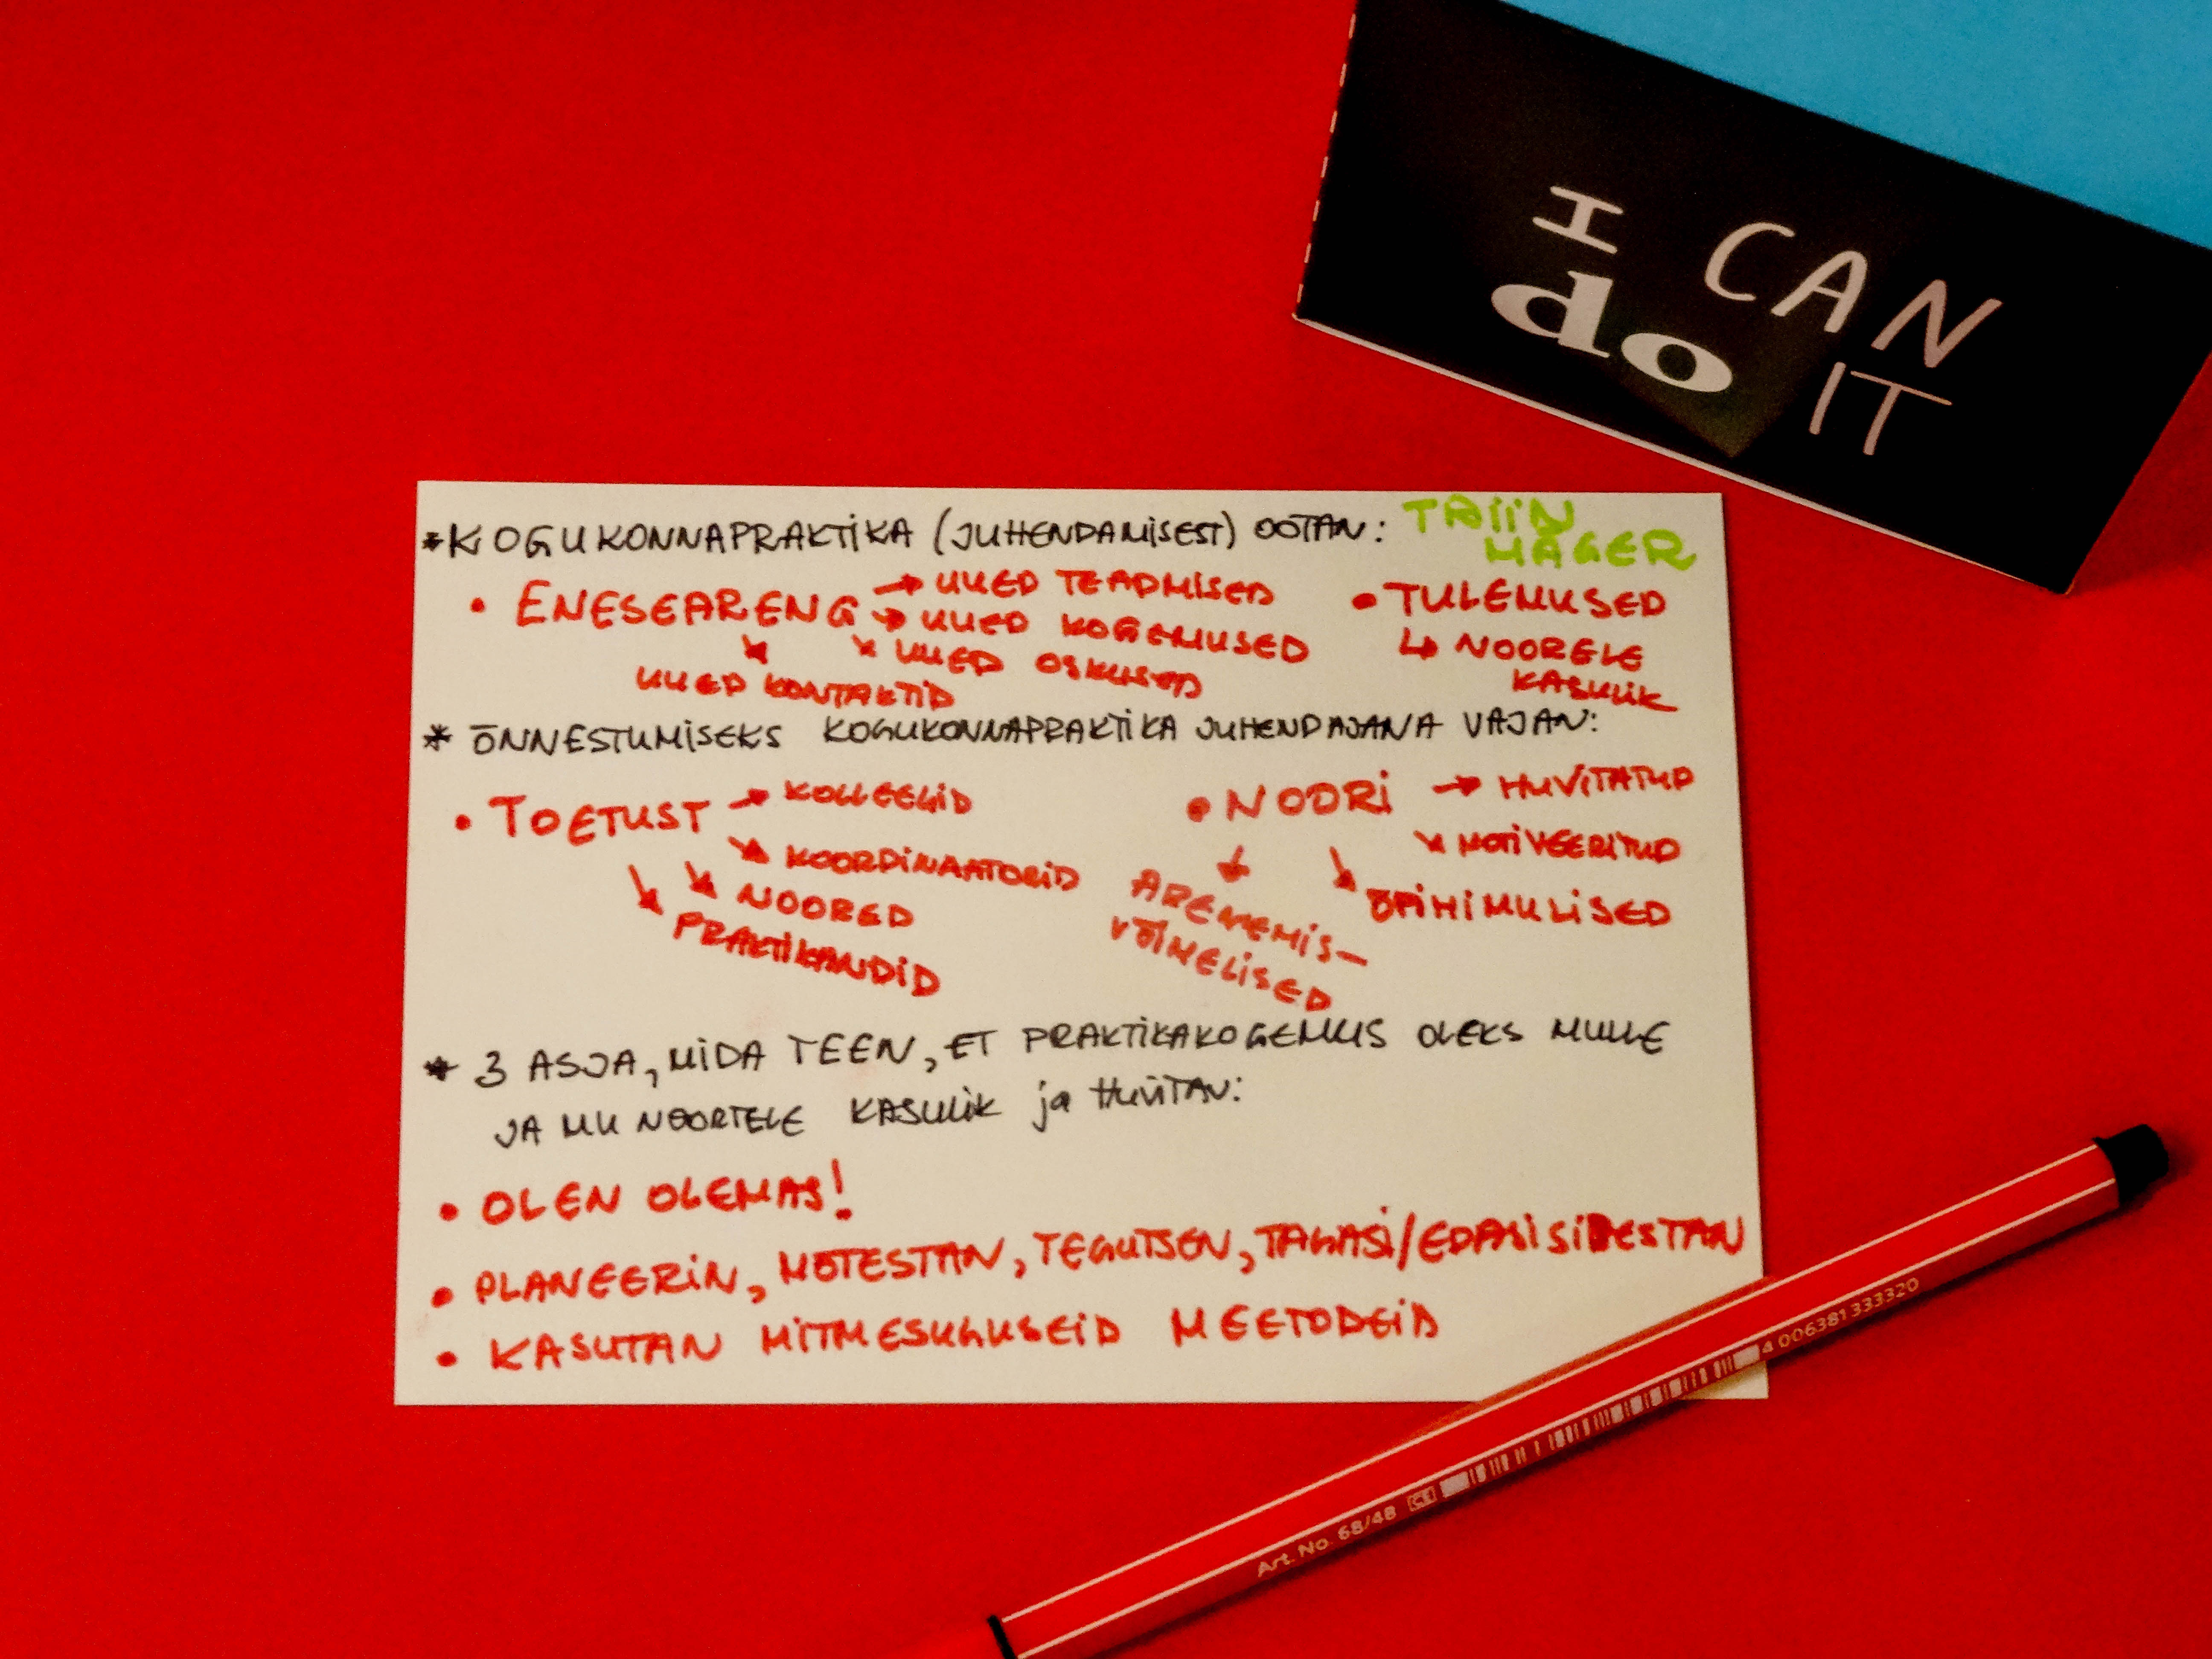 I CAN
do IT
*KOGUKONNAPRAKTIKA (JUHENDAMISEST) OOTAN: TRIIN
MÄGER
• ENESEARENG → UUED TEADMISED
→ UUED KOGEMUSED
↘ UUED OSKUSED
↘ UUED KONTAKTID
• TULEMUSED
↳ NOORELE
KASULIK
* ÕNNESTUMISEKS KOGUKONNAPRAKTIKA JUHENDAJANA VAJAN:
• TOETUST → KOLLEEGID
↘ KOORDINAATORID
↘ NOORED
↘ PRAKTIKANDID
• NOORI → HUVITATUD
↘ MOTIVEERITUD
↘ ÕPIHIMULISED
↓ ARENEMIS-
VÕIMELISED
* 3 ASJA, MIDA TEEN, ET PRAKTIKAKOGEMUS OLEKS MULLE
JA MU NOORTELE KASULIK ja HUVITAV:
• OLEN OLEMAS!
• PLANEERIN, MÕTESTAN, TEGUTSEN, TAGASI/EDASISIDESTAN
• KASUTAN MITMESUGUSEID MEETODEID
Art. No. 68/48 CE 4 006381 333320